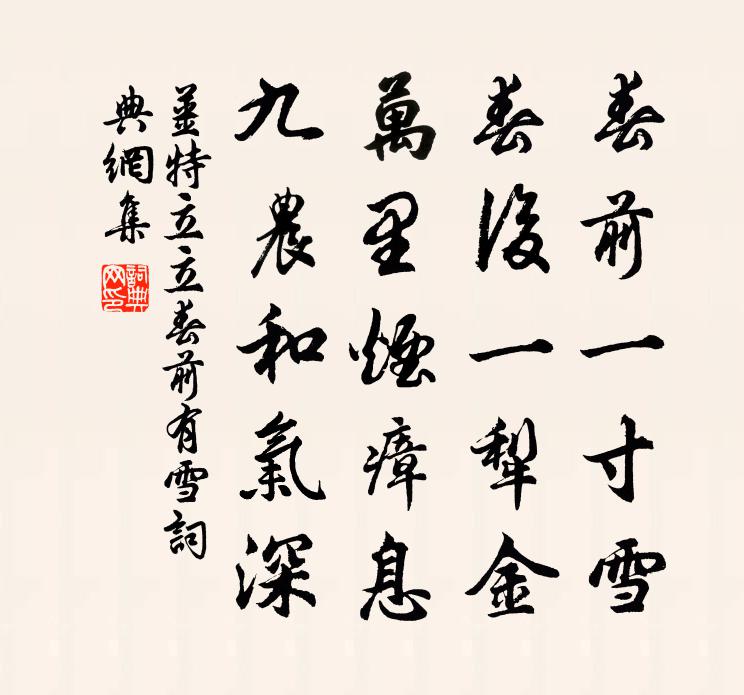 春前一寸雪
春後一犁金
萬里煙瘴息
九農和氣深
姜特立立春前有雪詞
典網集
詞典网印